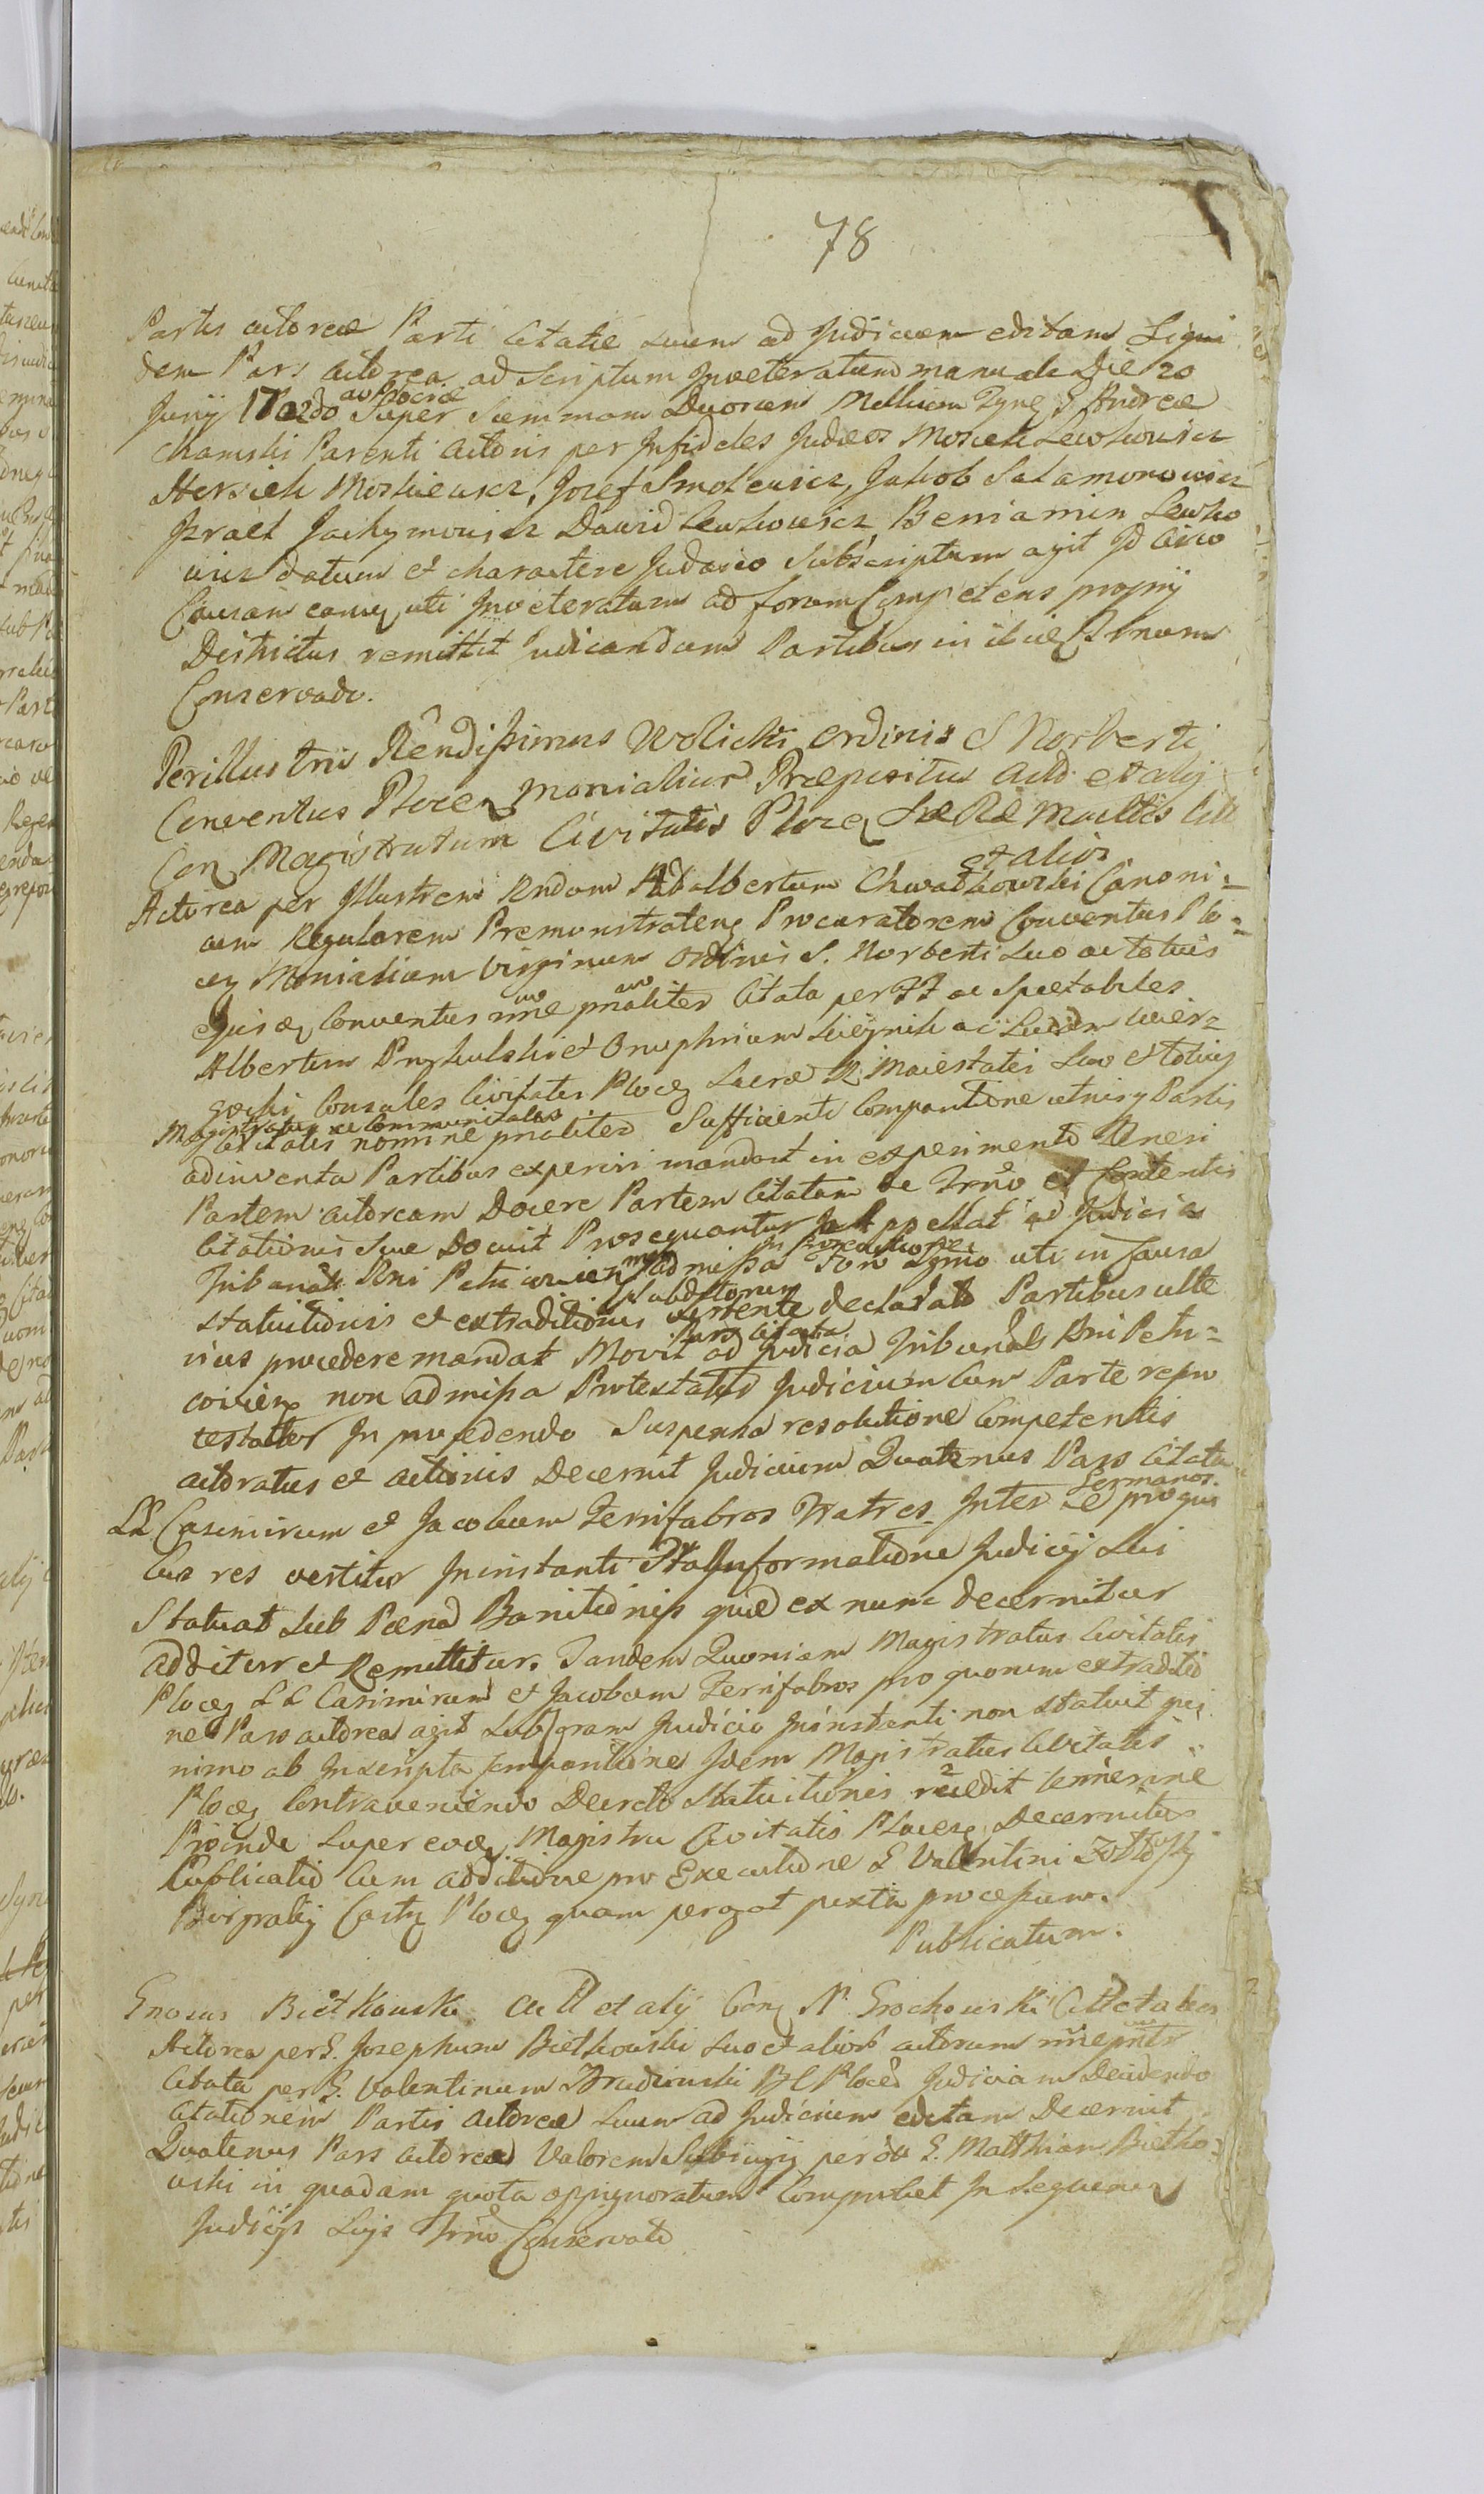 78
Partis actoreæ Parti Citatæ suum ad Judicium editam Siqui
dem Pars actorea ad scriptum Inveteratum manuale Die 20
Junÿ 1702do Super Summam Duorum Millium Tynf G Andreæ
Chamski Parenti actoris per Infideles Judæos Moszek Lewkowicz
Herszek Moszkiewicz, Jozef Smolewicz, Jakob Salamonowicz
Jzrael Jachymowicz Dawid Lewkowicz Beniamin Lewko
wicz datum et charactere Judaico Subscriptum agit Id circo
Causam eamq uti Inveteratam ad forum Competens proprÿ
Districtus remittit Judicandam Partibus in ibiq Trnum
Conservado.
Perillustris Rendissimus Wolicki Ordinis S Norberti
Conventus Plocen Monialium Præpositus act et alÿ
Con Magistratum Civitatis Plocen Sæ Ræ Mattis Citt
et alios
Actorea per Illustrem Rndum Adalbertum Chwatkowski Canoni=
cum Regularem Premonstraten Procuratorem Conventus Plo=
cen Monialium Virginum Ordinis S. Norberti suo ac totius
ejusq Conventus nne pnaliter Citata per FF ac Spectabiles
Albertum Przykulski et Onuphrium ac Lucam Wier=
Consules Civitatis Plocen Sacræ R Maiestatis Suo et totius
Magistratus ac Communitatis
Civitatis nomine pnaliter Sufficienti Comparitione utriusq Partis
adinventa Partibus experiri mandavit in experimento Reneri
Partem actoream Docere Partem Citatam de Trno et Contentis
Citationis Suæ Docuit Prosequantur Appellat ad Judicia
In prosecutione
Tribunalis Rni Petricovien admissa Foro Igno uti in Causa
Subditorum
statuitionis et extraditionis declarato Partibus ulte
Pars Citata
rius procedere mandat Movit ad Judicia Tribunalis Rni Petri=
covien non admissa Protestatur Judicium Cum Parte repro
testatur In procedendo Suspensa resolutione Competentis
actoratus et actionis Decernit Judicium Quatenus Pars Citata
Germanos
LL Casimirum et Jacobum Ferrifabros Fratres Inter Se pro qui
bus res vertitur In instanti Informatione Judicÿ Sui
Statuat sub Pœna Banitionis quæ ex nunc decernitur
additur et Remittitur. Tandem Quoniam Magistratus Civitatis
Plocen LL Casimirum et Jacobum Ferrifabros pro quorum extraditio
ne Pars actorea agit Judicio Inінstanti non statuit qui
nimo ab Inscripta Comparitione Idem Magistratus Civitatis
Plocen Contraveniendo Decreto Statuitionis recedit temerarie
Proinde Super eoq Magistru Civitatis Plocen Decernitur
Publicatio Cum additione pro Executione G Valentini
Burgrabÿ Castr Plocen quam peragat juxta processum.
Publicatum.
Gnosus Bietkowski Act et alÿ Con N Grochowski Citt et alios
Actorea per G. Josephum Bietkowski suo et alior actorum nne pnlr
Citata per G. Valentinum Judicium Decidendo
Citationem Partis actoreæ suum ad Judicium editam Decernit
Quatenus Pars actorea Valorem per G. Matthiam Bietko=
wski in quadam quota oppignoratum Comprobet In Sequenti
Judicÿs Suis Trno Conservato